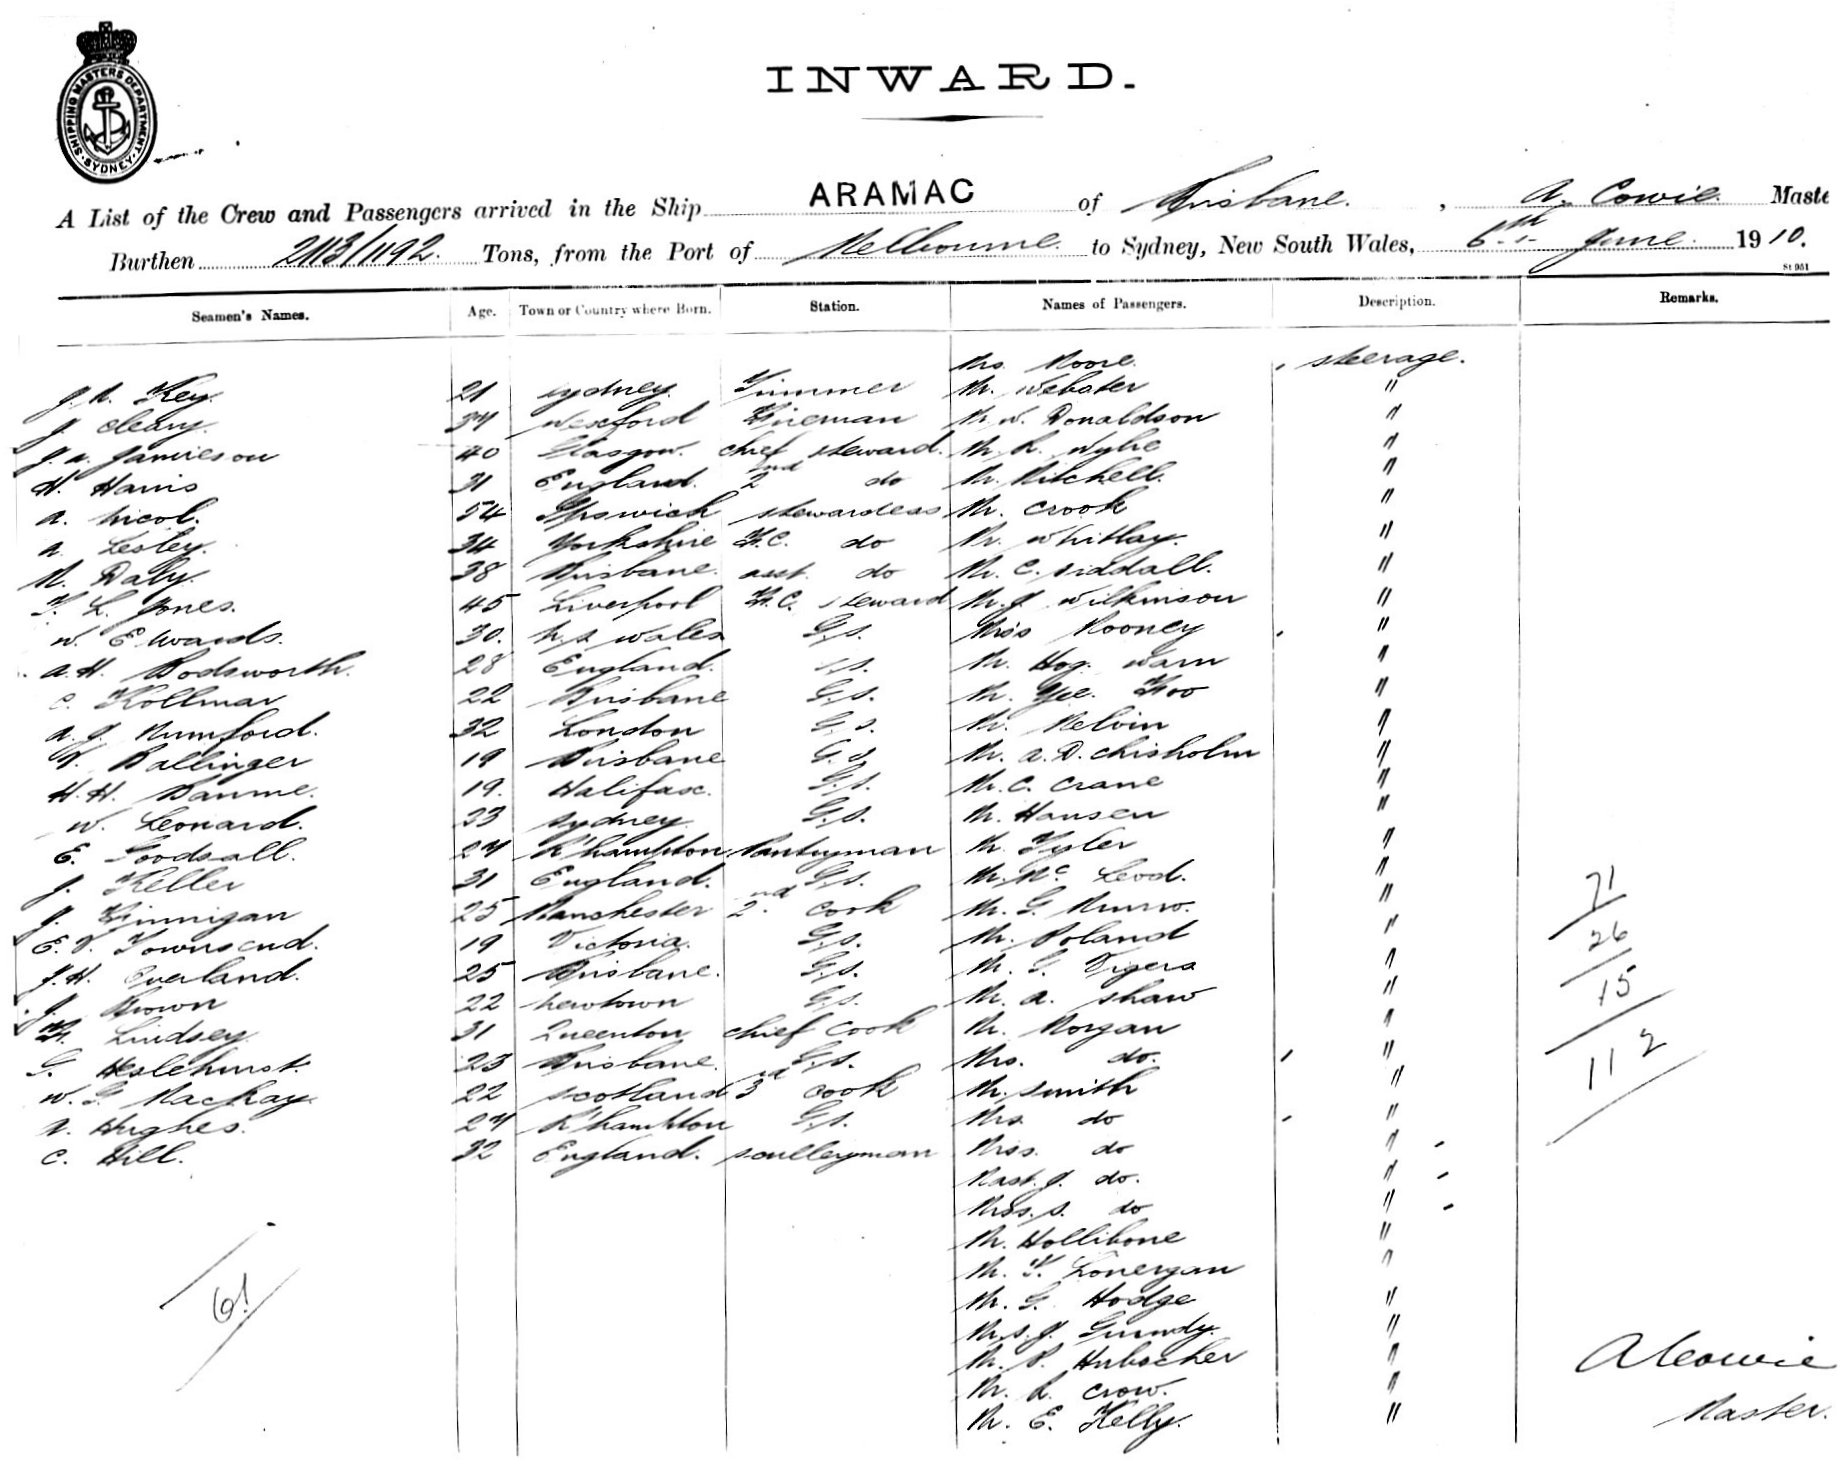 SHIPPING MASTERS DEPARTMENT · SYDNEY ·
INWARD.
A List of the Crew and Passengers arrived in the Ship ARAMAC of Brisbane. , A. Cowie. Maste
Burthen 2113/1192. Tons, from the Port of Melbourne. to Sydney, New South Wales, 6th June. 1910.
St 951
Seamen's Names. Age. Town or Country where Born. Station. Names of Passengers. Description. Remarks.
Mrs. Moore. steerage.
Key. 21 Sydney. Trimmer Mr. Webster "
J Cleary. 34 Wexford Fireman Mr. W. Donaldson "
J. A. Jamieson 40 Glasgow. Chief Steward. Mr. R. Wylie "
H. Harris 31 England. 2nd do Mr. Mitchell. "
A. Nicol. 54 Ipswich Stewardess Mr. Crook "
A. Lesley. 34 Yorkshire F.C. do Mr. Whitlay. "
M. Daly. 38 Brisbane. asst. do Mr. C. Siddall. "
T. L. Jones. 45 Liverpool F.C. Steward Mr. J. Wilkinson "
W. Edwards. 30. N.S. Wales G.S. Miss Mooney "
A. H. Bodsworth. 28 England. G.S. Mr. Hog. Warn "
C. Kollmar 22 Brisbane G.S. Mr. Yee. Foo "
A. J. Mumford. 32 London G.S. Mr. Melvin "
Ballinger 19 Brisbane G.S. Mr. A. D. Chisholm "
H. H. Baume. 19. Halifax. G.S. Mr. C. Crane "
W. Leonard. 23 Sydney. G.S. Mr. Hansen "
E. Goodsall. 24 R'hampton. Pantryman Mr. Tyler "
J. Keller 31 England. G.S. Mr. Mc Leod. "
J. Finnigan 25 Manchester 2nd Cook Mr. G. Munro. "
E. V. Townsend. 19 Victoria. G.S. Mr. Poland "
J. H. Overland. 25 Brisbane. G.S. Mr. G. Vigers "
J. Brown 22 Newtown G.S. Mr. A. Shaw "
Lindsey. 31 Queenton Chief Cook Mr. Morgan "
G. Heslehurst. 23 Brisbane. G.S. Mrs. do. "
W. G. Mackay. 22 Scotland 3rd Cook Mr. Smith "
A. Hughes. 24 R'hampton G.S. Mrs. do "
C. Hill. 32 England. Sculleryman Miss. do "
Mast. J. do. "
Miss. S. do "
Mr. Hollibone "
Mr. T. Lonergan "
Mr. G. Hodge "
Mr. S. J. Grundy. "
Mr. P. Hubscher "
Mr. R. Crow. "
Mr. E. Kelly. "
61
71
26
15
112
A Cowie
Master.